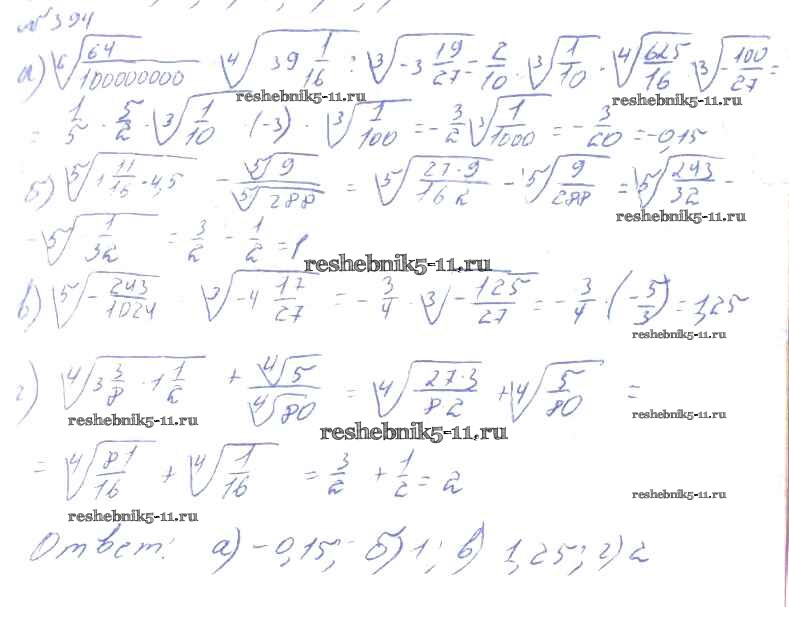 №394
а) ⁶√(64/100000000) · ⁴√(39 1/16) : ³√(-3 19/27) = 2/10 · ³√(1/10) · ⁴√(625/16) · ³√(-100/27) =
reshebnik5-11.ru reshebnik5-11.ru
= 1/5 · 5/2 · ³√(1/10) · (-3) · ³√(1/100) = -3/2 ³√(1/1000) = -3/20 = -0,15
б) ⁵√(1 11/16 · 4,5) - ⁵√9/⁵√288 = ⁵√(27·9/16·2) - ⁵√(9/288) = ⁵√(243/32) -
reshebnik5-11.ru
- ⁵√(1/32) = 3/2 - 1/2 = 1
reshebnik5-11.ru
в) ⁵√(-243/1024) · ³√(-4 17/27) = -3/4 · ³√(-125/27) = -3/4 · (-5/3) = 1,25
reshebnik5-11.ru
г) ⁴√(3 3/8 · 1 1/2) + ⁴√5/⁴√80 = ⁴√(27·3/8·2) + ⁴√(5/80) =
reshebnik5-11.ru reshebnik5-11.ru reshebnik5-11.ru
= ⁴√(81/16) + ⁴√(1/16) = 3/2 + 1/2 = 2
reshebnik5-11.ru reshebnik5-11.ru
Ответ: а) -0,15; б) 1; в) 1,25; г) 2